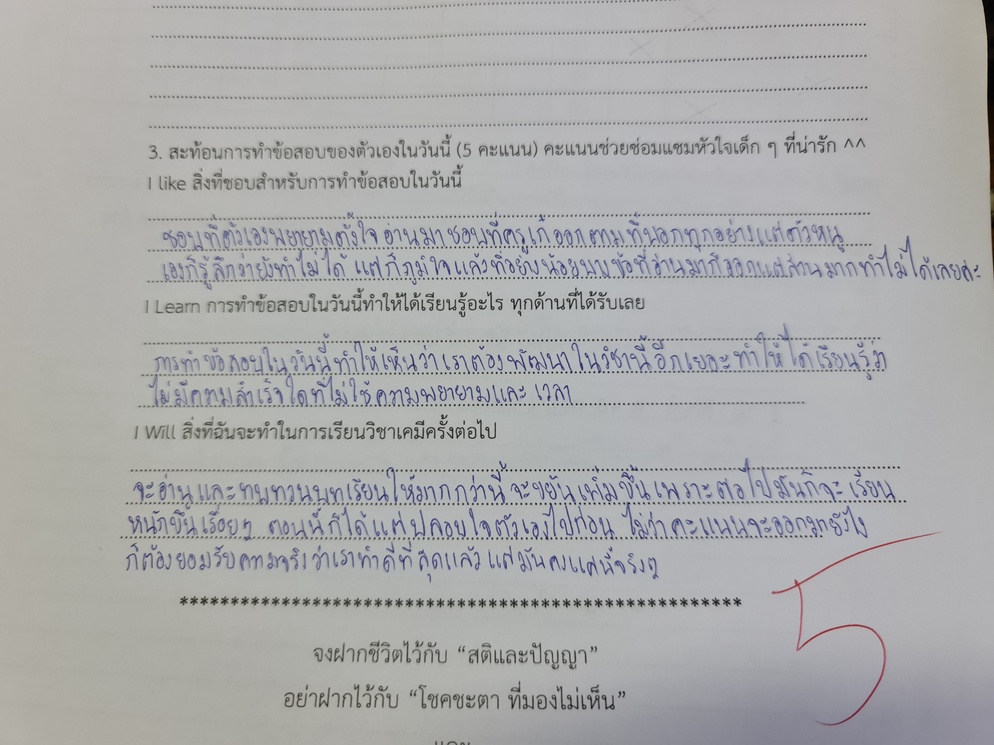 3. สะท้อนการทำข้อสอบของตัวเองในวันนี้ (5 คะแนน) คะแนนช่วยซ่อมแซมหัวใจเด็ก ๆ ที่น่ารัก ^^
I like สิ่งที่ชอบสำหรับการทำข้อสอบในวันนี้
ชอบที่ตัวเองพยายามตั้งใจอ่านมา ชอบที่ครูเก้ออกตามที่บอกทุกอย่างแต่ตัวหนู
เองก็รู้สึกว่ายังทำไม่ได้ แต่ก็ภูมิใจแล้วที่อย่างน้อยบางข้อที่อ่านมาก็ออกแต่ส่วนมากทำไม่ได้เลยค่ะ
I Learn การทำข้อสอบในวันนี้ทำให้ได้เรียนรู้อะไร ทุกด้านที่ได้รับเลย
การทำข้อสอบในวันนี้ทำให้เห็นว่าเราต้องพัฒนาในวิชานี้อีกเยอะ ทำให้ได้เรียนรู้ว่า
ไม่มีความสำเร็จใดที่ไม่ใช้ความพยายามและ เวลา
I Will สิ่งที่ฉันจะทำในการเรียนวิชาเคมีครั้งต่อไป
จะอ่านและทบทวนบทเรียนให้มากกว่านี้ จะขยันเพิ่มขึ้นเพราะต่อไปมันก็จะเรียน
หนักขึ้นเรื่อยๆ ตอนนี้ก็ได้แต่ปลอบใจตัวเองไปก่อน ไม่ว่าคะแนนจะออกมายังไง
ก็ต้องยอมรับความจริงว่าเราทำดีที่สุดแล้ว แต่มันคงแค่นี้จริงๆ
******************************************************
จงฝากชีวิตไว้กับ "สติและปัญญา"
อย่าฝากไว้กับ "โชคชะตา ที่มองไม่เห็น"
และ
5